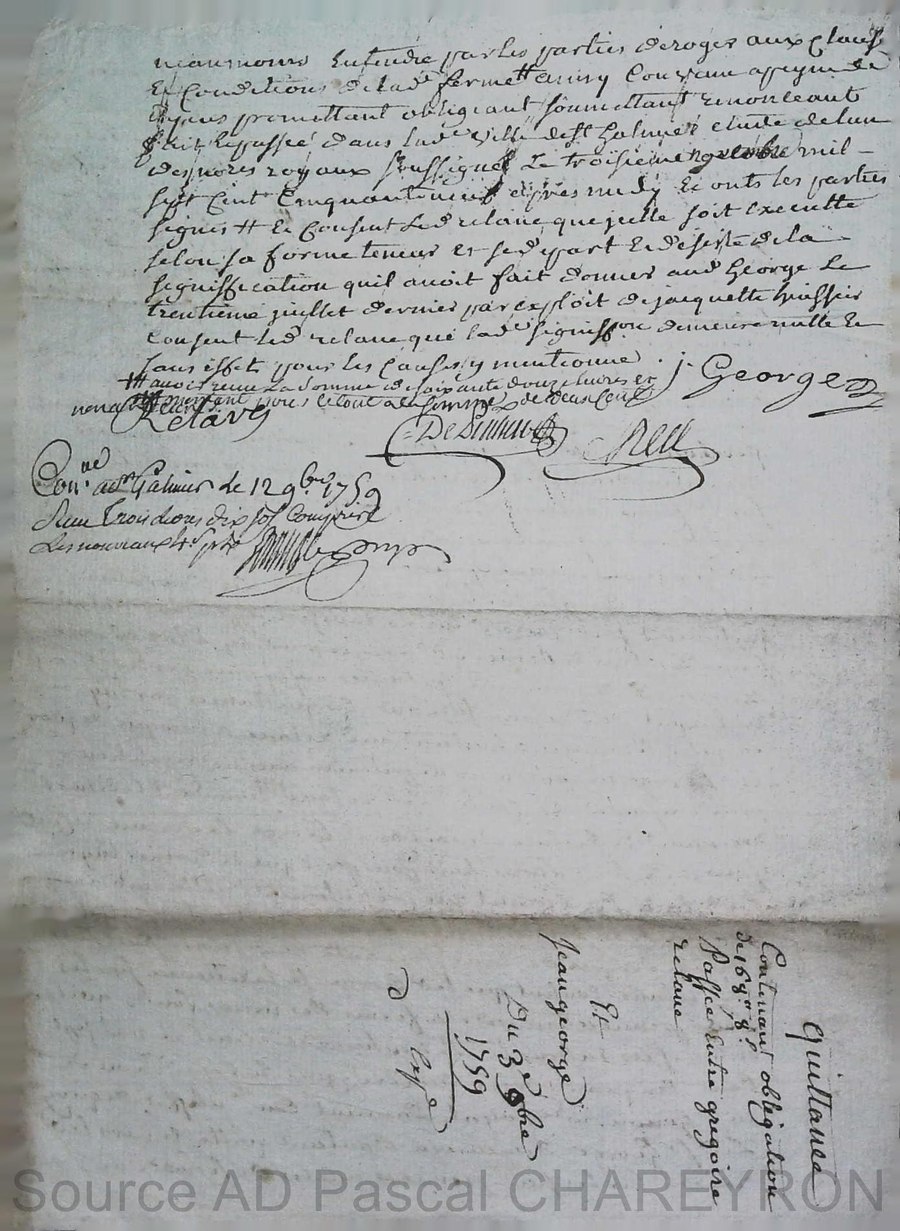 neanmoins Entendre par les parties deroger aux Clauses
Et Conditions de lad^e ferme tt ainsy Convenu a peyne de
promettant obligeant soumettant renonceant
fait Et passée dans lad^e ville de S^t Galmier etude de lun
des no^res royaux soussignés Le troisieme 9^bre mil
sept Cent Cinquanteneuf apres midy Et onts les parties
signés tt Et Consent Led^t relave que jcelle soit Executté
selon sa forme teneur et se depart Et desiste de la
signiffication quil avoit fait donner aud^t George Le
trentieme juillet dernier par exploit de jacquette huissier
Consent Led^t relave que lad^e signiff^on demeure nulle Et
Sans effet pour les Causes y mentionné .
tt avoir reçue La somme de soixante douze livres et
le tout a la somme de deux Cent
J George
Relave
Con^lé a S^t Galmier le 12 9^bre 1759
Reçu Trois Livres dix sols Compris
Les nouveaux
Quittance
Contenant obligation
de 168^# 8^s
Passée Entre gregoire
relave
Et
Jean george
Du 3^e 9bre
1759
Exp^e
Source AD Pascal CHAREYRON